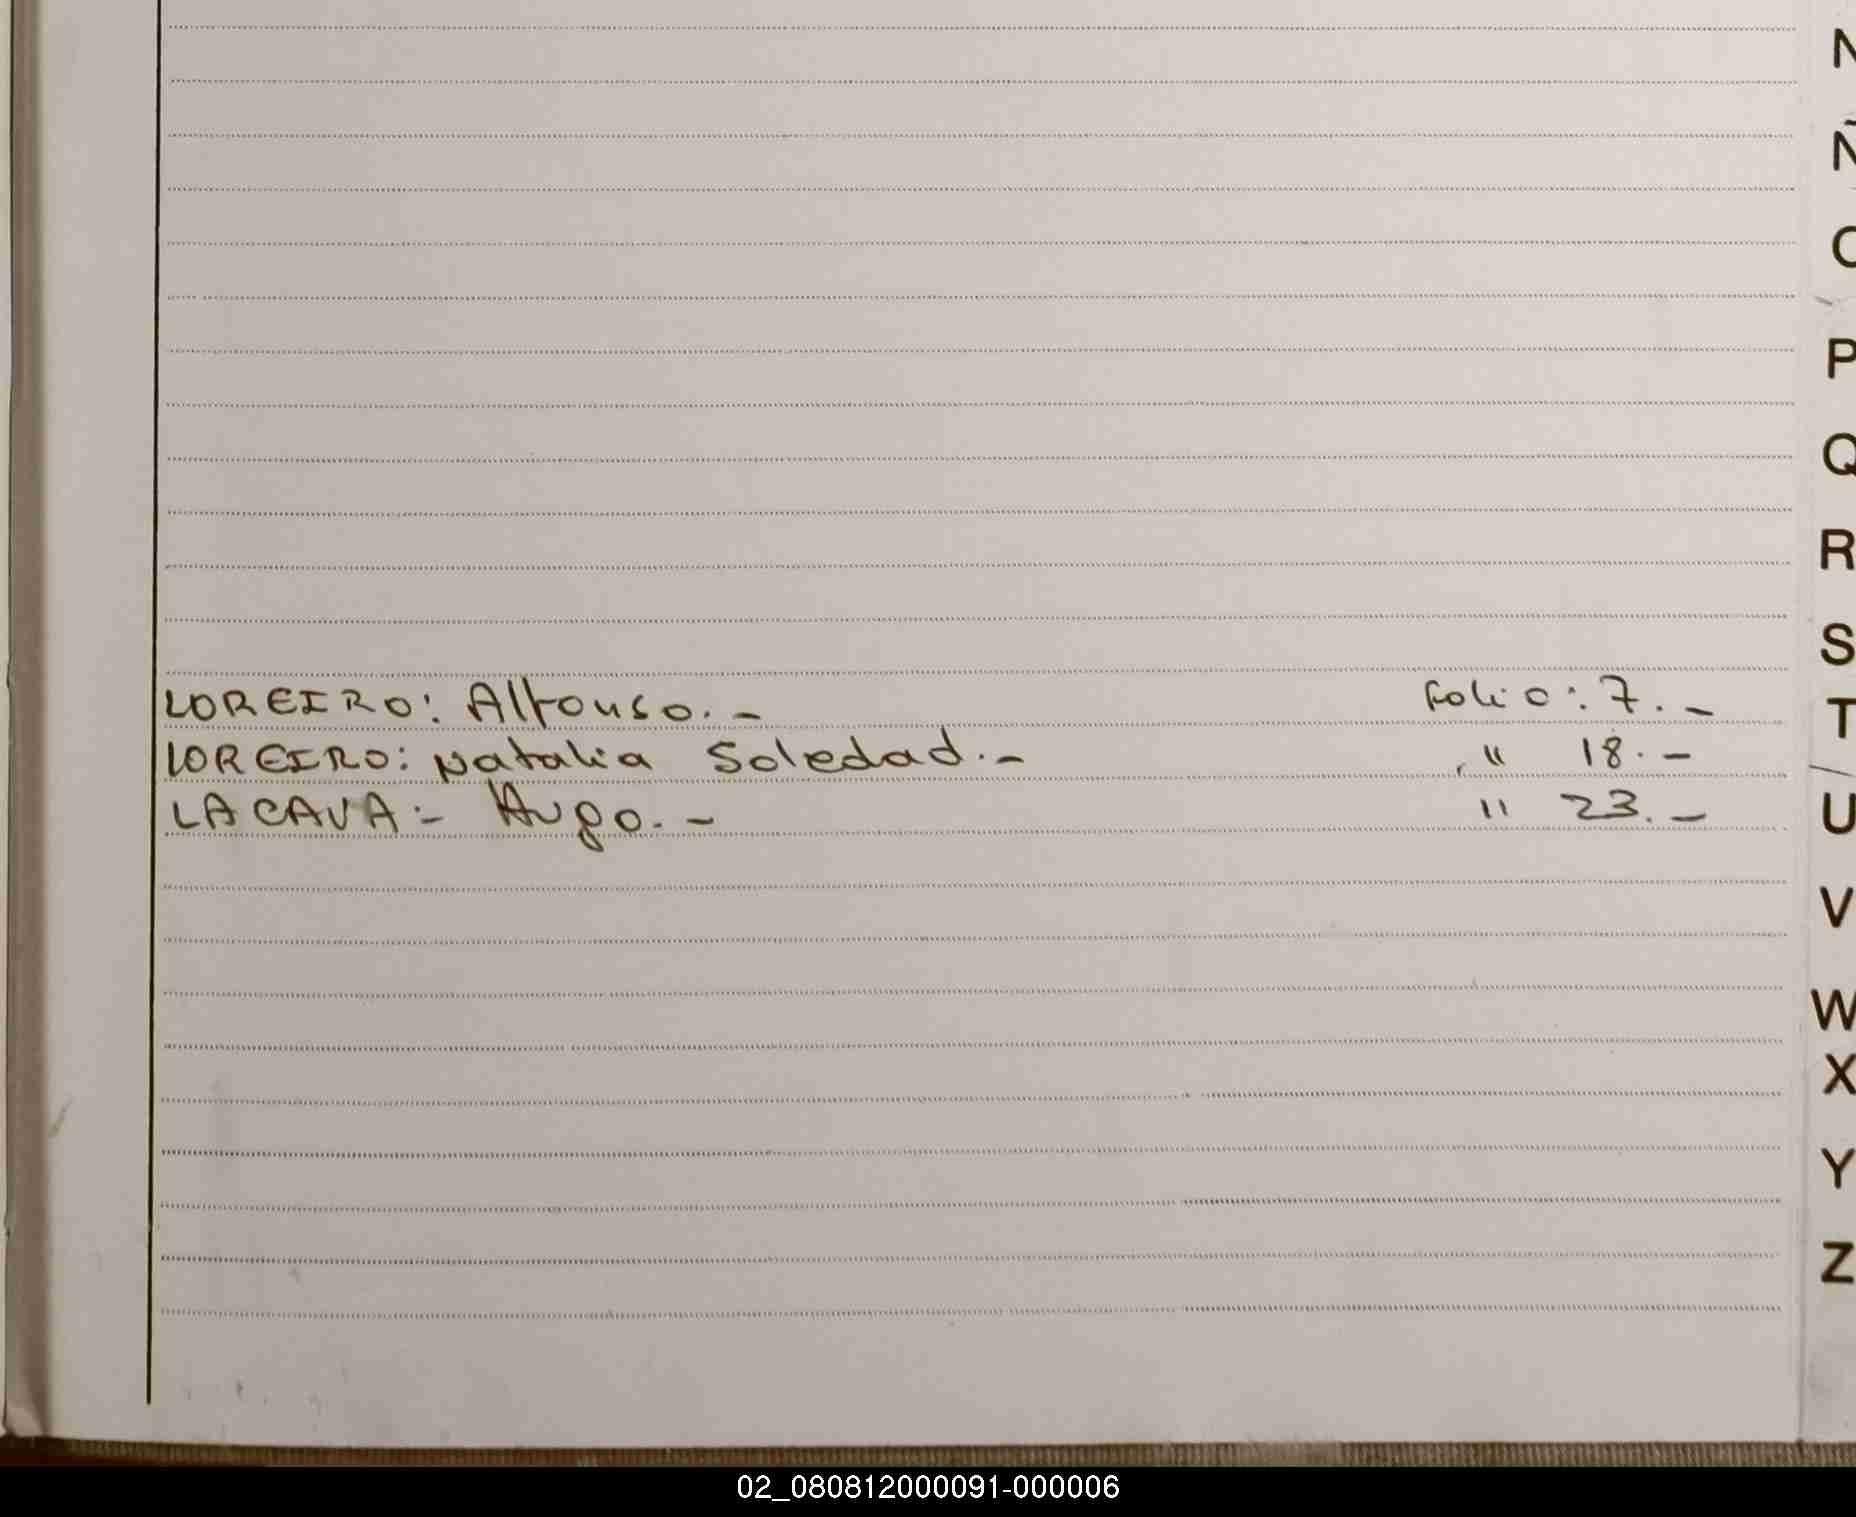 N
Ñ
O
P
Q
R
S
LOREIRO: Alfonso. - Folio: 7. -
T
LOREIRO: Natalia Soledad. - " 18. -
LACAVA: - Hugo. - " 23. -
U
V
W
X
Y
Z
02_080812000091-000006